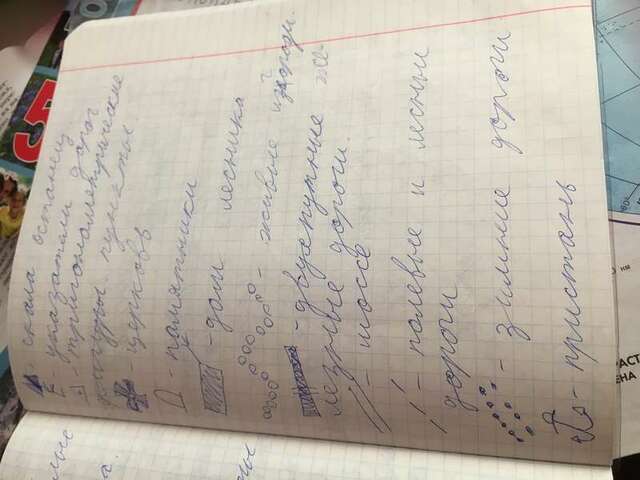 - скала останец
- указатели дорог
- тригонометрические
фигуры. пункты
- церковв
- памятники
- дом лесника
- живые изгороди.
- двухпутные же-
лезные дороги.
- шоссе
- полевые и лесные
дороги
- зимние дороги
- пристань